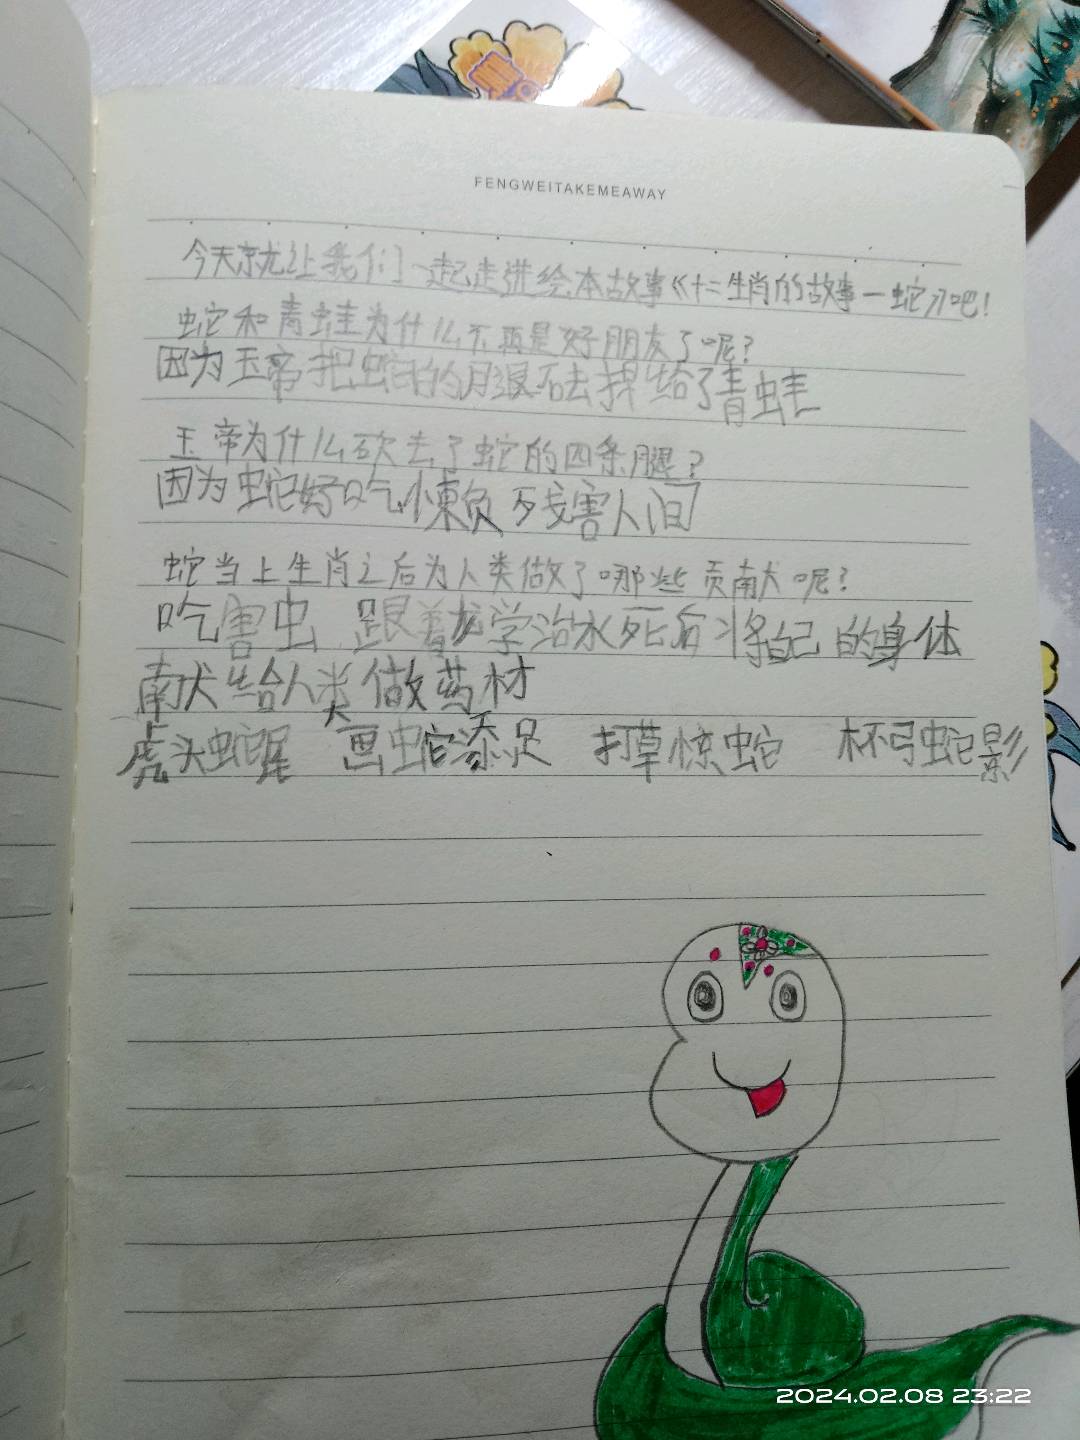 FENGWEITAKEMEAWAY
今天就让我们一起走进绘本故事《十二生肖的故事—蛇》吧!
蛇和青蛙为什么不再是好朋友了呢?
因为玉帝把蛇的的腿砍去给了青蛙
玉帝为什么砍去了蛇的四条腿?
因为蛇好吃懒负残害人间
蛇当上生肖之后为人类做了哪些贡献呢?
吃害虫 跟着龙学治水死后将自己的身体
献给人类做药材
虎头蛇尾 画蛇添足 打草惊蛇 杯弓蛇影
2024.02.08 23:22